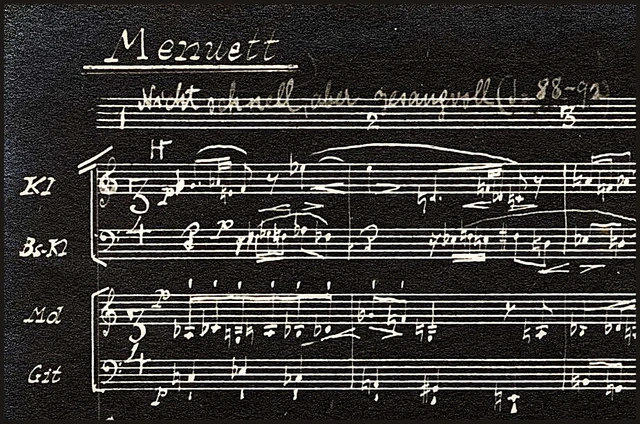 Menuett
Nicht schnell, aber gesangvoll (♩= 88-92)
1 2 3
H
Kl 3 4 p
Bs-Kl p
Md 3 4 p
Git p